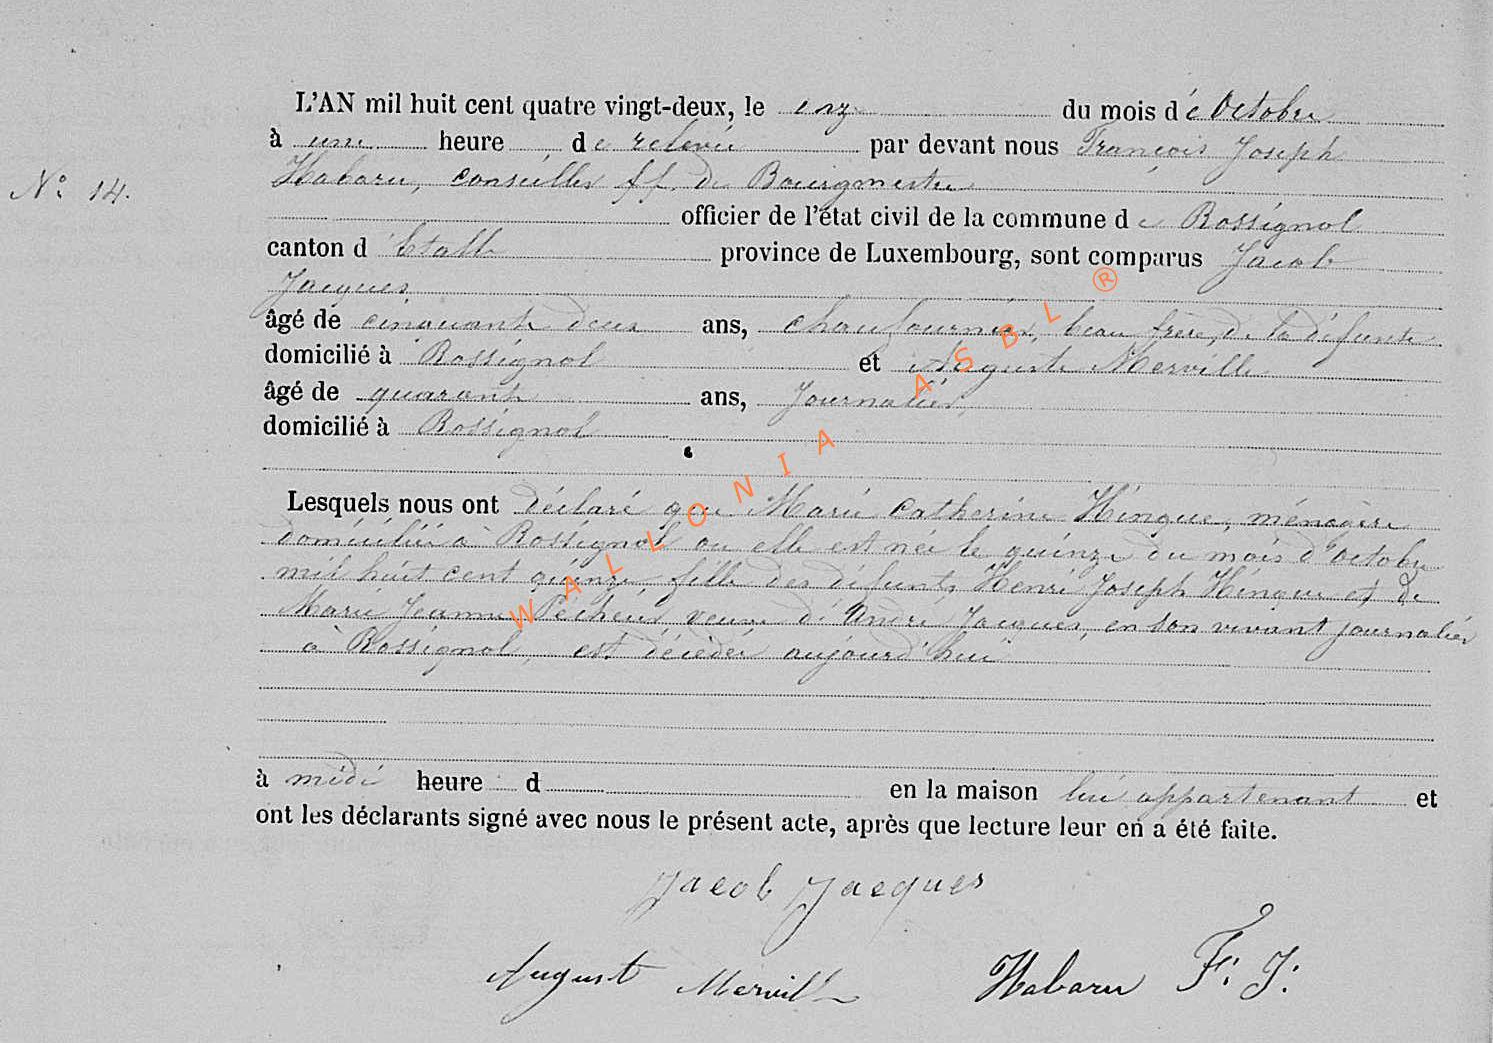 L'AN mil huit cent quatre vingt-deux, le onze du mois de Octobre
à une heure de relevée par devant nous François Joseph
Nº 14.
Habaru, conseiller ff. de Bourgmestre
officier de l'état civil de la commune de Rossignol
canton d'Etalle province de Luxembourg, sont comparus Jacob
Jacques
âgé de cinquante deux ans, chaufournier, beau frère de la défunte
domicilié à Rossignol et Auguste Merville
âgé de quarante ans, Journalier,
domicilié à Rossignol
Lesquels nous ont déclaré que Marie Catherine Hinque, ménagère
domiciliée à Rossignol ou elle est née le quinze du mois d'octobre
mil huit cent quinze fille des défunts Henri Joseph Hinque et de
Marie Jeanne Pécheur veuve d'André Jacques, en son vivant journalier
à Rossignol, est décédée aujourd'hui
à midi heure d en la maison lui appartenant et
ont les déclarants signé avec nous le présent acte, après que lecture leur en a été faite.
Jacob Jacques
August Merville Habaru F. J.
WALLONIA ASBL ®